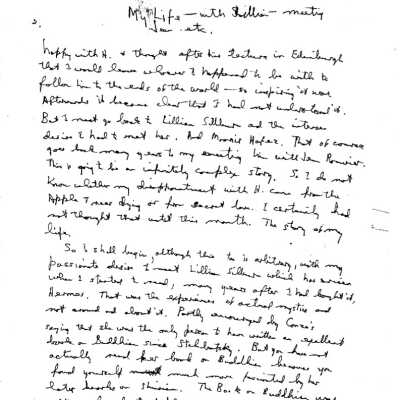 My Life – with Lillian – meeting
Jan. etc.
2.
happy with H. & thought after his lecture in Edinburgh
that I would leave whoever I happened to be with to
follow him to the ends of the world – so inspiring it was.
Afterwards it became clear that I had not understood it.
But I must go back to Lillian Silburn and the intense
desire I had to meet her. And Moonis Hafez. That of course
goes back many years to my meeting him with Jan Bouvier.
This is going to be an infinitely complex story. So I do not
know whether my disappointment with H. came from the
Apple I was dying or for secret love. I certainly had
not thought that until this month. The story of my
life.
So I shall begin, although this too is arbitrary, with my
passionate desire to meet Lillian Silburn which has arisen
when I started to read, many years after I had bought it,
Hermes. That was the experiences of actual mystics and
not around and about it. Partly encouraged by
saying that she was the only person to have written an excellent
book on Buddhism since Stcherbatsky. But you have not
actually read her book on Buddhism because you
found yourself much more fascinated by her
later books on Shivaism. The Book on Buddhism was